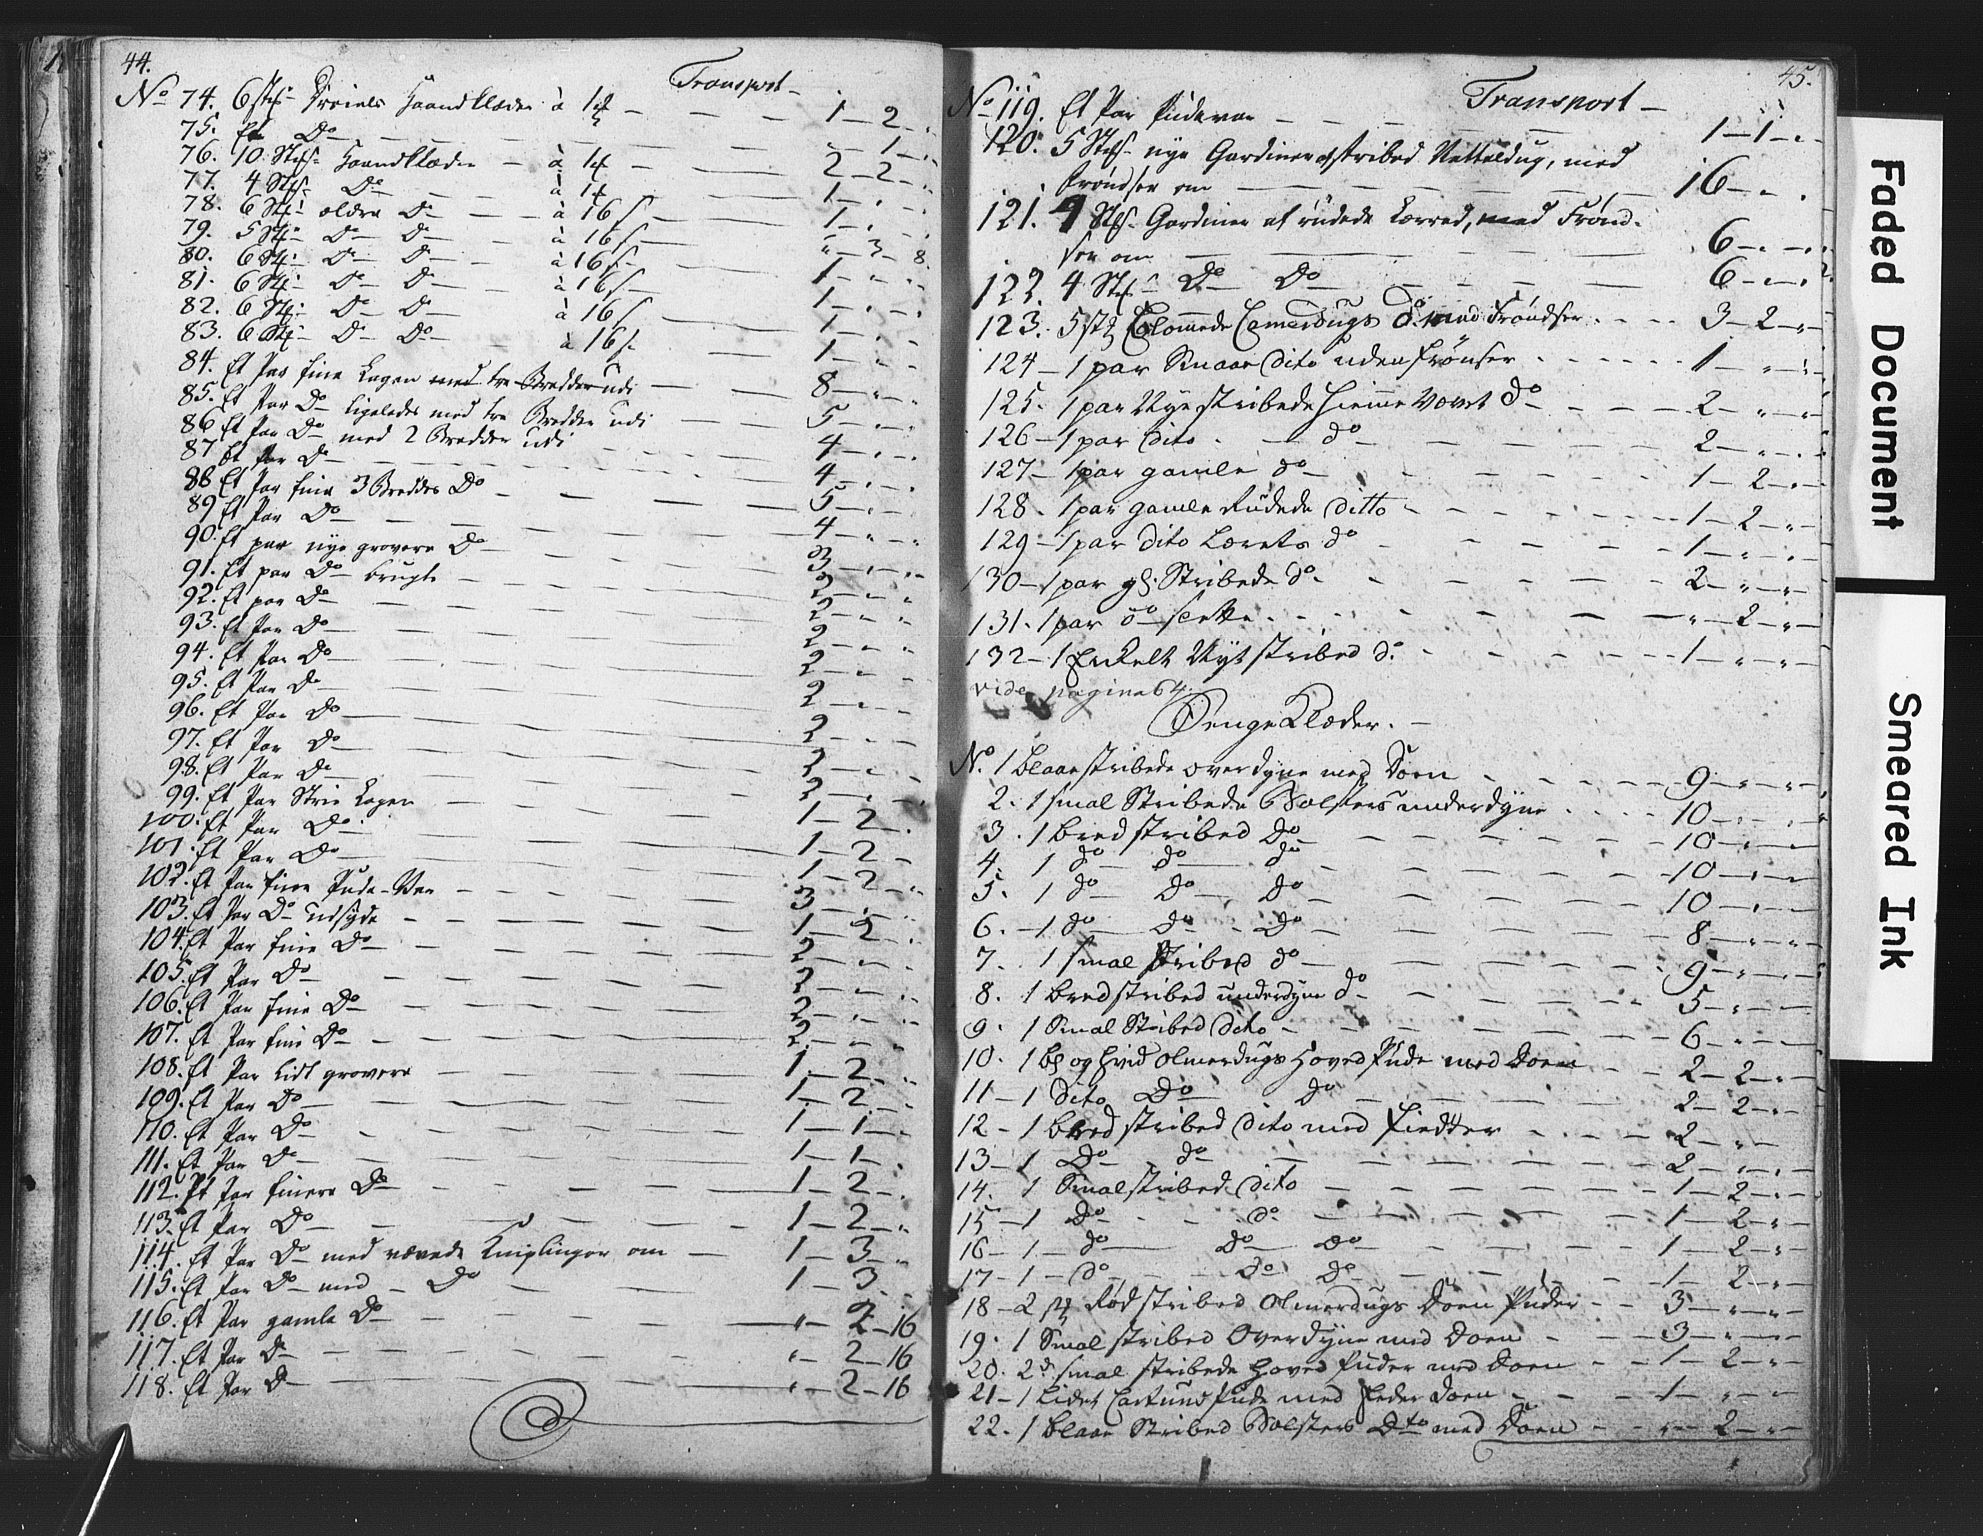 44.
Transport
No 74. 6 stk. Dreiels Haandklæder à 1 - - - 1-2-"
75. Et Do - - - 1-"
76. 10 Stk. Haandklæder - à 1 - - - 2-2-"
77. 4 Stk. Do - à 1 - - - 1-"-"
78. 6 Stk. ældre Do - - à 16 s. - 1-"-"
79. 5 Stk. Do Do - à 16 s. - "-3-8
80. 6 Stk. Do Do - à 16 s. - 1-"-"
81. 6 Stk. Do Do - à 16 s. - 1-"-"
82. 6 Stk. Do Do - à 16 s. - 1-"-"
83. 6 Stk. Do Do - à 16 s. - 1-"-"
84. Et Par fine Lagen med tre Bredder udi - 8-"-"
85. Et Par Do ligeledes med tre Bredder udi - 5-"-"
86 Et Par Do med 2 Bredder udi - 4-"-"
87 Et Par Do - 4-"-"
88 Et Par fine 3 Bredders Do - 5-"-"
89 Et Par Do - 4-"-"
90. Et par nye grovere Do - 3-"-"
91. Et par Do brugte - 2-"-"
92. Et par Do - 2-"-"
93. Et Par Do - 2-"-"
94. Et Par Do - 2-"-"
95. Et Par Do - 2-"-"
96. Et Par Do - 2-"-"
97. Et Par Do - 2-"-"
98. Et Par Do - 2-"-"
99. Et Par Strie Lagen - 1-2-"
100. Et Par Do - 1-2-"
101. Et Par Do - 1-2-"
102. Et Par fine Pude-Var - 3-"-"
103. Et Par Do udsyde - 1-2-"
104. Et Par fine Do - 2-"-"
105. Et Par Do - 2-"-"
106. Et Par fine Do - 2-"-"
107. Et Par fine Do - 2-"-"
108. Et Par lidt grovere - 1-2-"
109. Et Par Do - 1-2-"
110. Et Par Do - 1-1-"
111. Et Par Do - 1-1-"
112. Et Par finere Do - 1-2-"
113. Et Par Do - 1-2-"
114. Et Par Do med vævede Kniplinger om - 1-3-"
115. Et Par Do med - Do - 1-3-"
116. Et Par gamle Do - "-2-16
117. Et Par Do - "-2-16
118. Et Par Do - "-2-16
45.
Transport
No 119. Et Par Pudevar - 1-1-"
120. 5 Stk. nye Gardiner af stribed Netteldug, med
Frøndser om - 16-"-"
121. 4 Stk. Gardiner af rudede Lærred, med Frønd-
ser om - 6-"-"
122. 4 Stk. Do Do - 6-"-"
123. 5 stk Blomede Cemerdugs do med Frøndser - 3-2-"
124 - 1 par Smaae Dito uden Frønser - 1-"-"
125. 1 par Nye stribede Hiemme Vævet do - 2-"-"
126 - 1 par Dito - do - 2-"-"
127 - 1 par gamle do - 1-2-"
128. 1 par gamle Rudede Ditto - 1-2-"
129 - 1 par Dito Lærets do - 1-"-"
130 - 1 par gl. Stribede do - 2-"-"
131. 1 par do slette - "-2-"
132 - 1 Enkelt Nyt stribed do - 1-"-"
vide pagina 64.
Senge Klæder.
No. 1 blaae stribede overdyne med Doen - 9-"-"
2. 1 smal Stribede Bolsters underdyne - 10-"-"
3. 1 bred stribed Do - 10-"-"
4. 1 do do do - 10-"-"
5. 1 do Do Do - 10-"-"
6. - 1 do Do - Do - 8-"-"
7. 1 smal stribed do - 9-"-"
8. 1 bred stribed underdyne do - 5-"-"
9. 1 Smal Stribed Dito - 6-"-"
10. 1 bl og Hvid Olmerdugs Hoved Pude med Doen - 2-2-"
11 - 1 Dito Do Do - 2-2-"
12 - 1 bred stribed Dito med Fiedder - 2-"-"
13 - 1 Do do - 2-"-"
14. 1 Smal stribed Dito - 1-2-"
15 - 1 Do - do - 1-2-"
16 - 1 - do Do Do - 1-2-"
17 - 1 - Do - Do Do - 1-2-"
18 - 2 stk Rød stribed Olmerdugs Doen Puder - 3-"-"
19. 1 Smal stribed Over Dyne med Doen - 3-"-"
20. 2 do smal stribede Hoved Puder med Doen - 1-2-"
21 - 1 Lidet Cartuns Pude med Feder Doen - 1-"-"
22. 1 blaae Stribed Bolsters Dto med Doen - "-2-"
Faded Document
Smeared Ink